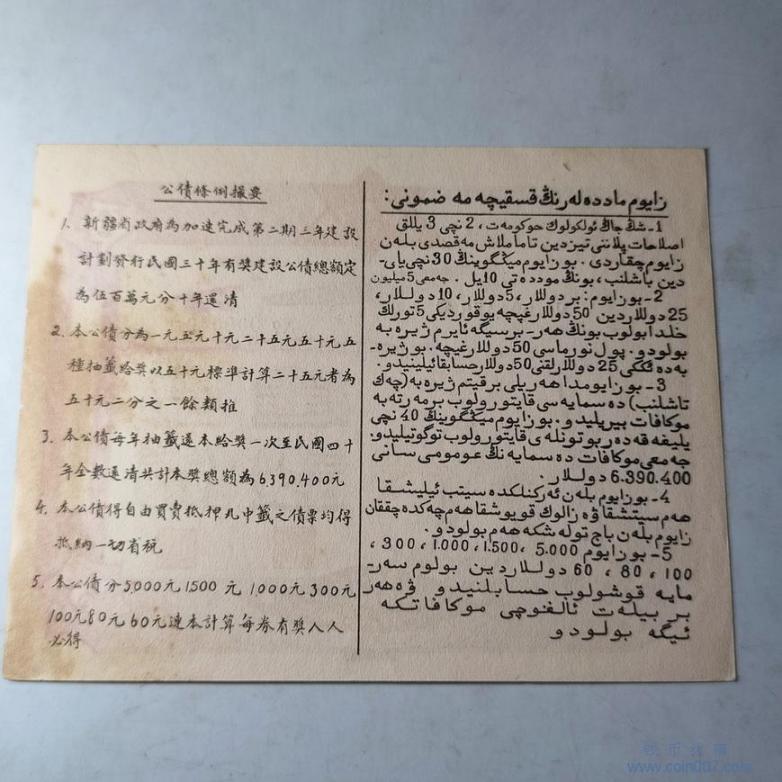 公債條例撮要
1. 新疆省政府為加速完成第二期三年建設
計劃發行民國三十年有獎建設公債總額定
為伍百萬元分十年還清
2. 本公債分為一元五元十元二十五元五十元五
種抽籤給獎以五十元標準計算二十五元者為
五十元二分之一餘類推
3. 本公債每年抽籤還本給獎一次至民國四十
年全數還清共計本獎總額為6,390,400元
4. 本公債得自由買賣抵押凡中籤之債票均得
抵納一切省稅
5. 本公債分5000元1500元1000元300元
100元80元60元連本計算每券有獎人人
必得
زايوم ماددەلەرنىڭ قسقيچەمە ضمونى:
1-شڭ جاڭ ئولكولوك حوكومەت، 2 نچى 3 يللق
اصلاحات پلاننى تيزدين تاماملاش مەقصدى بلەن
زايوم چقاردى. بوزايوم ميڭگوينىڭ 30 نچى يلى-
دين باشلنب، بونىڭ موددەتى 10 يل. جەمعى 5 ميليون
2-بوزايوم: بر دوللار، 5 دوللار، 10 دوللار،
25 دوللاردين 50 دوللارغيچە يوقورديكى 5 تورلك
خلدا بولوب بونىڭ هەر- برسيگە ئايرم ژيرە بە
بولودو. پول نورماسى 50 دوللارغيچە. بوژيرە-
بەدە ئككى 25 دوللارلقنى 50 دوللار حسابقا ئيلينيدو.
3-بوزايومدا هەر يلى بر قيتم ژيرە بە (چەك
تاشلنب) دە سمايەسى قايتورولوب بر مەرتە بە
موكافات بيريليدو. بوزايوم ميڭگوينىڭ 40 نچى
يليغە قەدەر بوتونلەى قايتورولوب توگوتيليدو.
جەمعى موكافات دە سمايەنىڭ عومومى سانى
6.390.400 دوللار.
4-بوزايوم بلەن ئەركنلكدە سيتب ئيليشقا
هەم سيتشقا ۋە زالوك قويوشقا هەم چەكدە چققان
زايوم بلەن باج تولەشكە هەم بولودو.
5-بوزايوم 5.000، 1.500، 1.000، 300،
100، 80، 60 دوللاردين بولوم سەر-
مايە قوشولوب حسابلنيدو ۋە هەر
بر بيلەت ئالغوچى موكافاتكە
ئيگە بولودو
钱币收藏
www.coin007.com